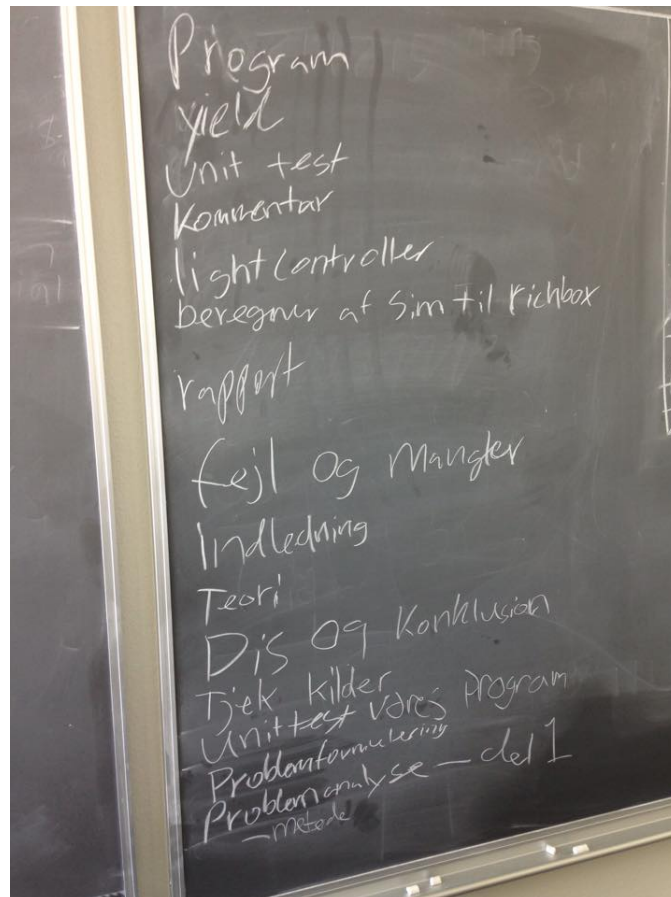 Program
yield
Unit test
Kommentar
lightController
beregner af Sim til richbox
rapport
fejl og Mangler
Indledning
Teori
Dis og Konklusion
Tjek kilder
Unit test vores program
Problemformulering
Problemanalyse - del 1
- metode